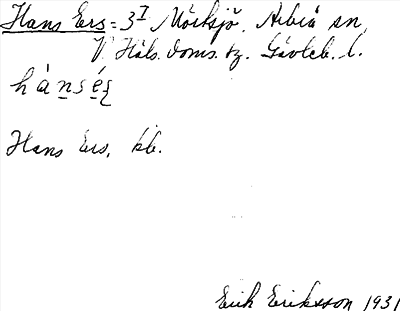 Hans Ers = 3⁷ Mörksjö, Arbrå sn,
V. Häls. doms. tg. Gävleb. l.
hánsé
Hans Ers, kb.
Erik Eriksson 1931